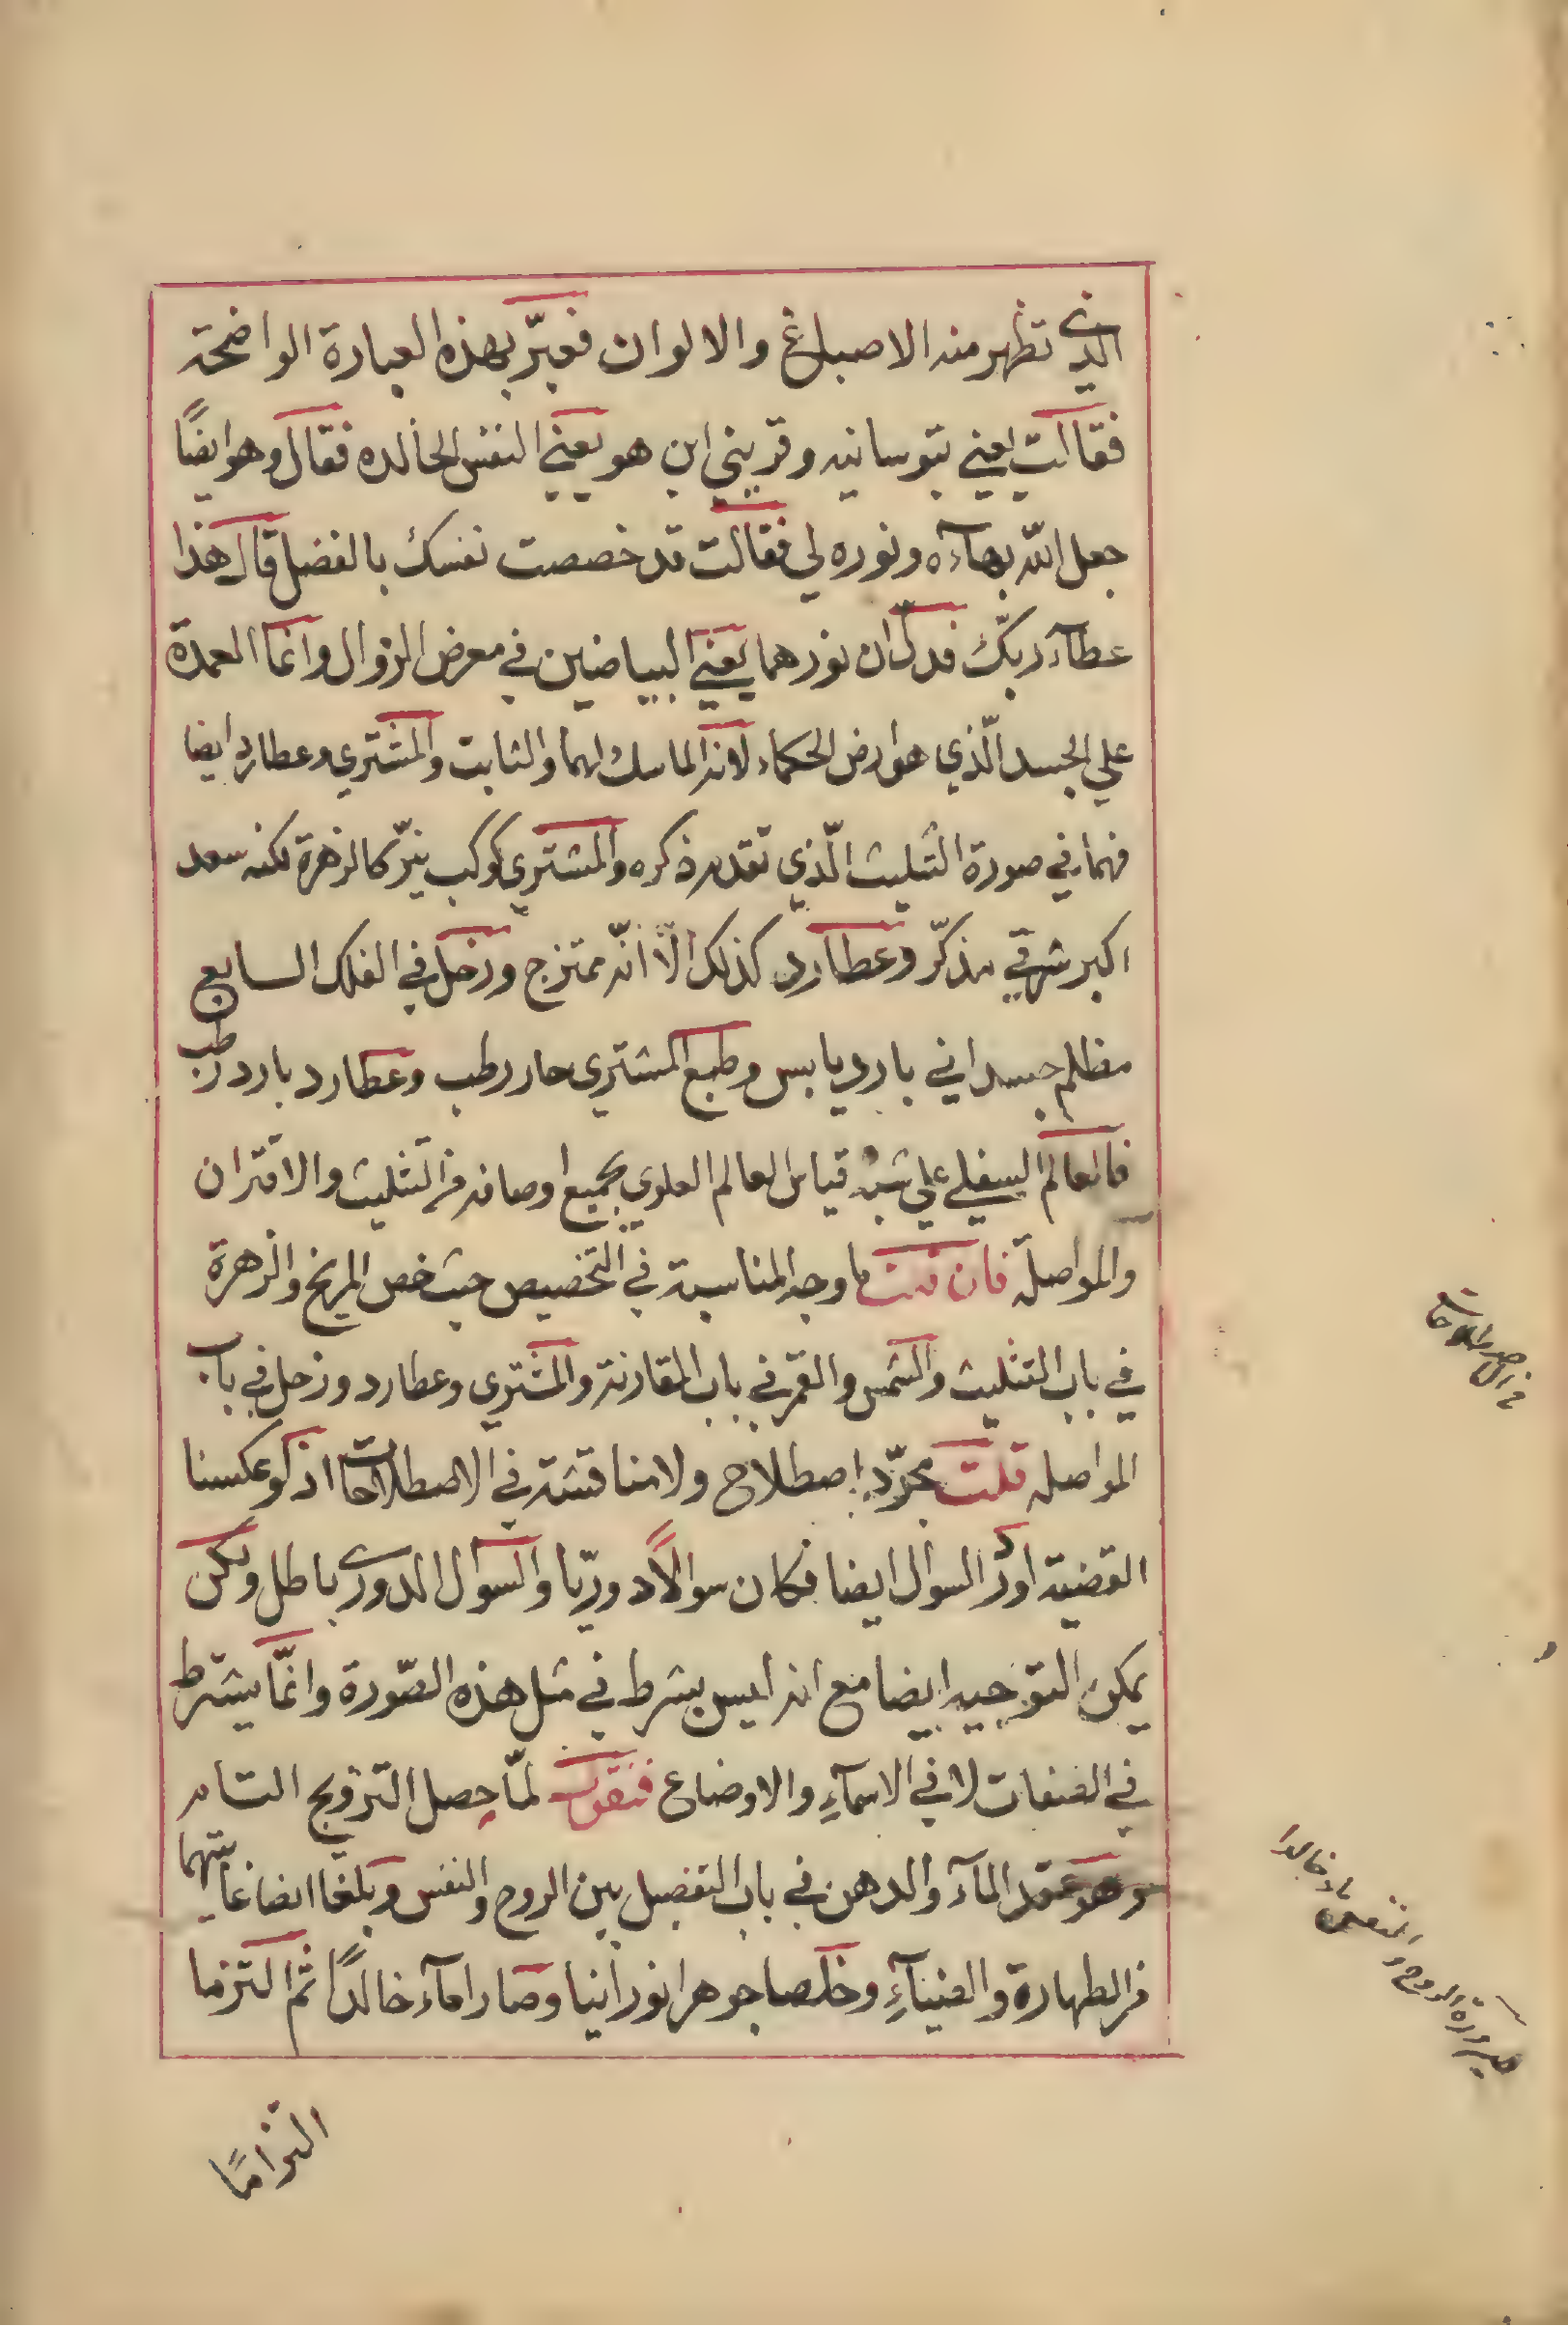 الذي تظهر منه الاصباغ والالوان فعبّر بهذه العبارة الواضحة
فقالت يعني بتوسانيه وقريني اين هو يعني النفس الخالده فقال وهو ايضًا
جعل اللّه بهآءه ونوره لي فقالت قد خصصت نفسك بالفضل قال هذا
عطآء ربّك فدلّ ان نورهما يعني البياضين في معرض الزوال وانما العمدة
علي الجسد الّذي هو ارض الحكماء لانه الماسك لهما والثابت والمشتري وعطارد ايضا
فهما في صورة التثليث الّذي تقدم ذكره والمشتري كوكب نيّر كالزهرة لكنه سعد
اكبر شرقي مذكّر وعطارد كذلك الّا انّه ممتزج وزحل في الفلك السابع
مظلم جسداني بارد يابس وطبع المشتري حار رطب وعطارد بارد رطب
فالعالم السفلي علي شبه قياس العالم العلوي بجميع اوصافه من التثليث والاقتران
والمواصلة فان قلت ما وجه المناسبة في التخصيص حيث خص المريخ والزهرة
في باب التثليث والشمس والقمر في باب المقارنة والمشتري وعطارد وزحل في باب
المواصله قلت مجرّد اصطلاح ولا مناقشة في الاصطلاحات اذ لو عكسنا
القضية اورد السوال ايضا فكان سوالًا دوريّا والسوال الدوري باطل ولكن
يمكن التوجيه ايضا مع انه ليس بشرط في مثل هذه الصّورة وانّما يشترط
في الصفات لا في الاسمآءِ والاوضاع فنقول لمّا حصل التزويج التام
وهو عقد المآء والدهن في باب التفصيل بين الروح والنفس وبلغا ايضا غايتهما
من الطهارة والضيآءِ وخلصا جوهرا نورانيا وصارا مآء خالدًا ثم التزما
التزامًا
في الاصطلاحات
صيرورة الروح و
النفس مآء خالدا